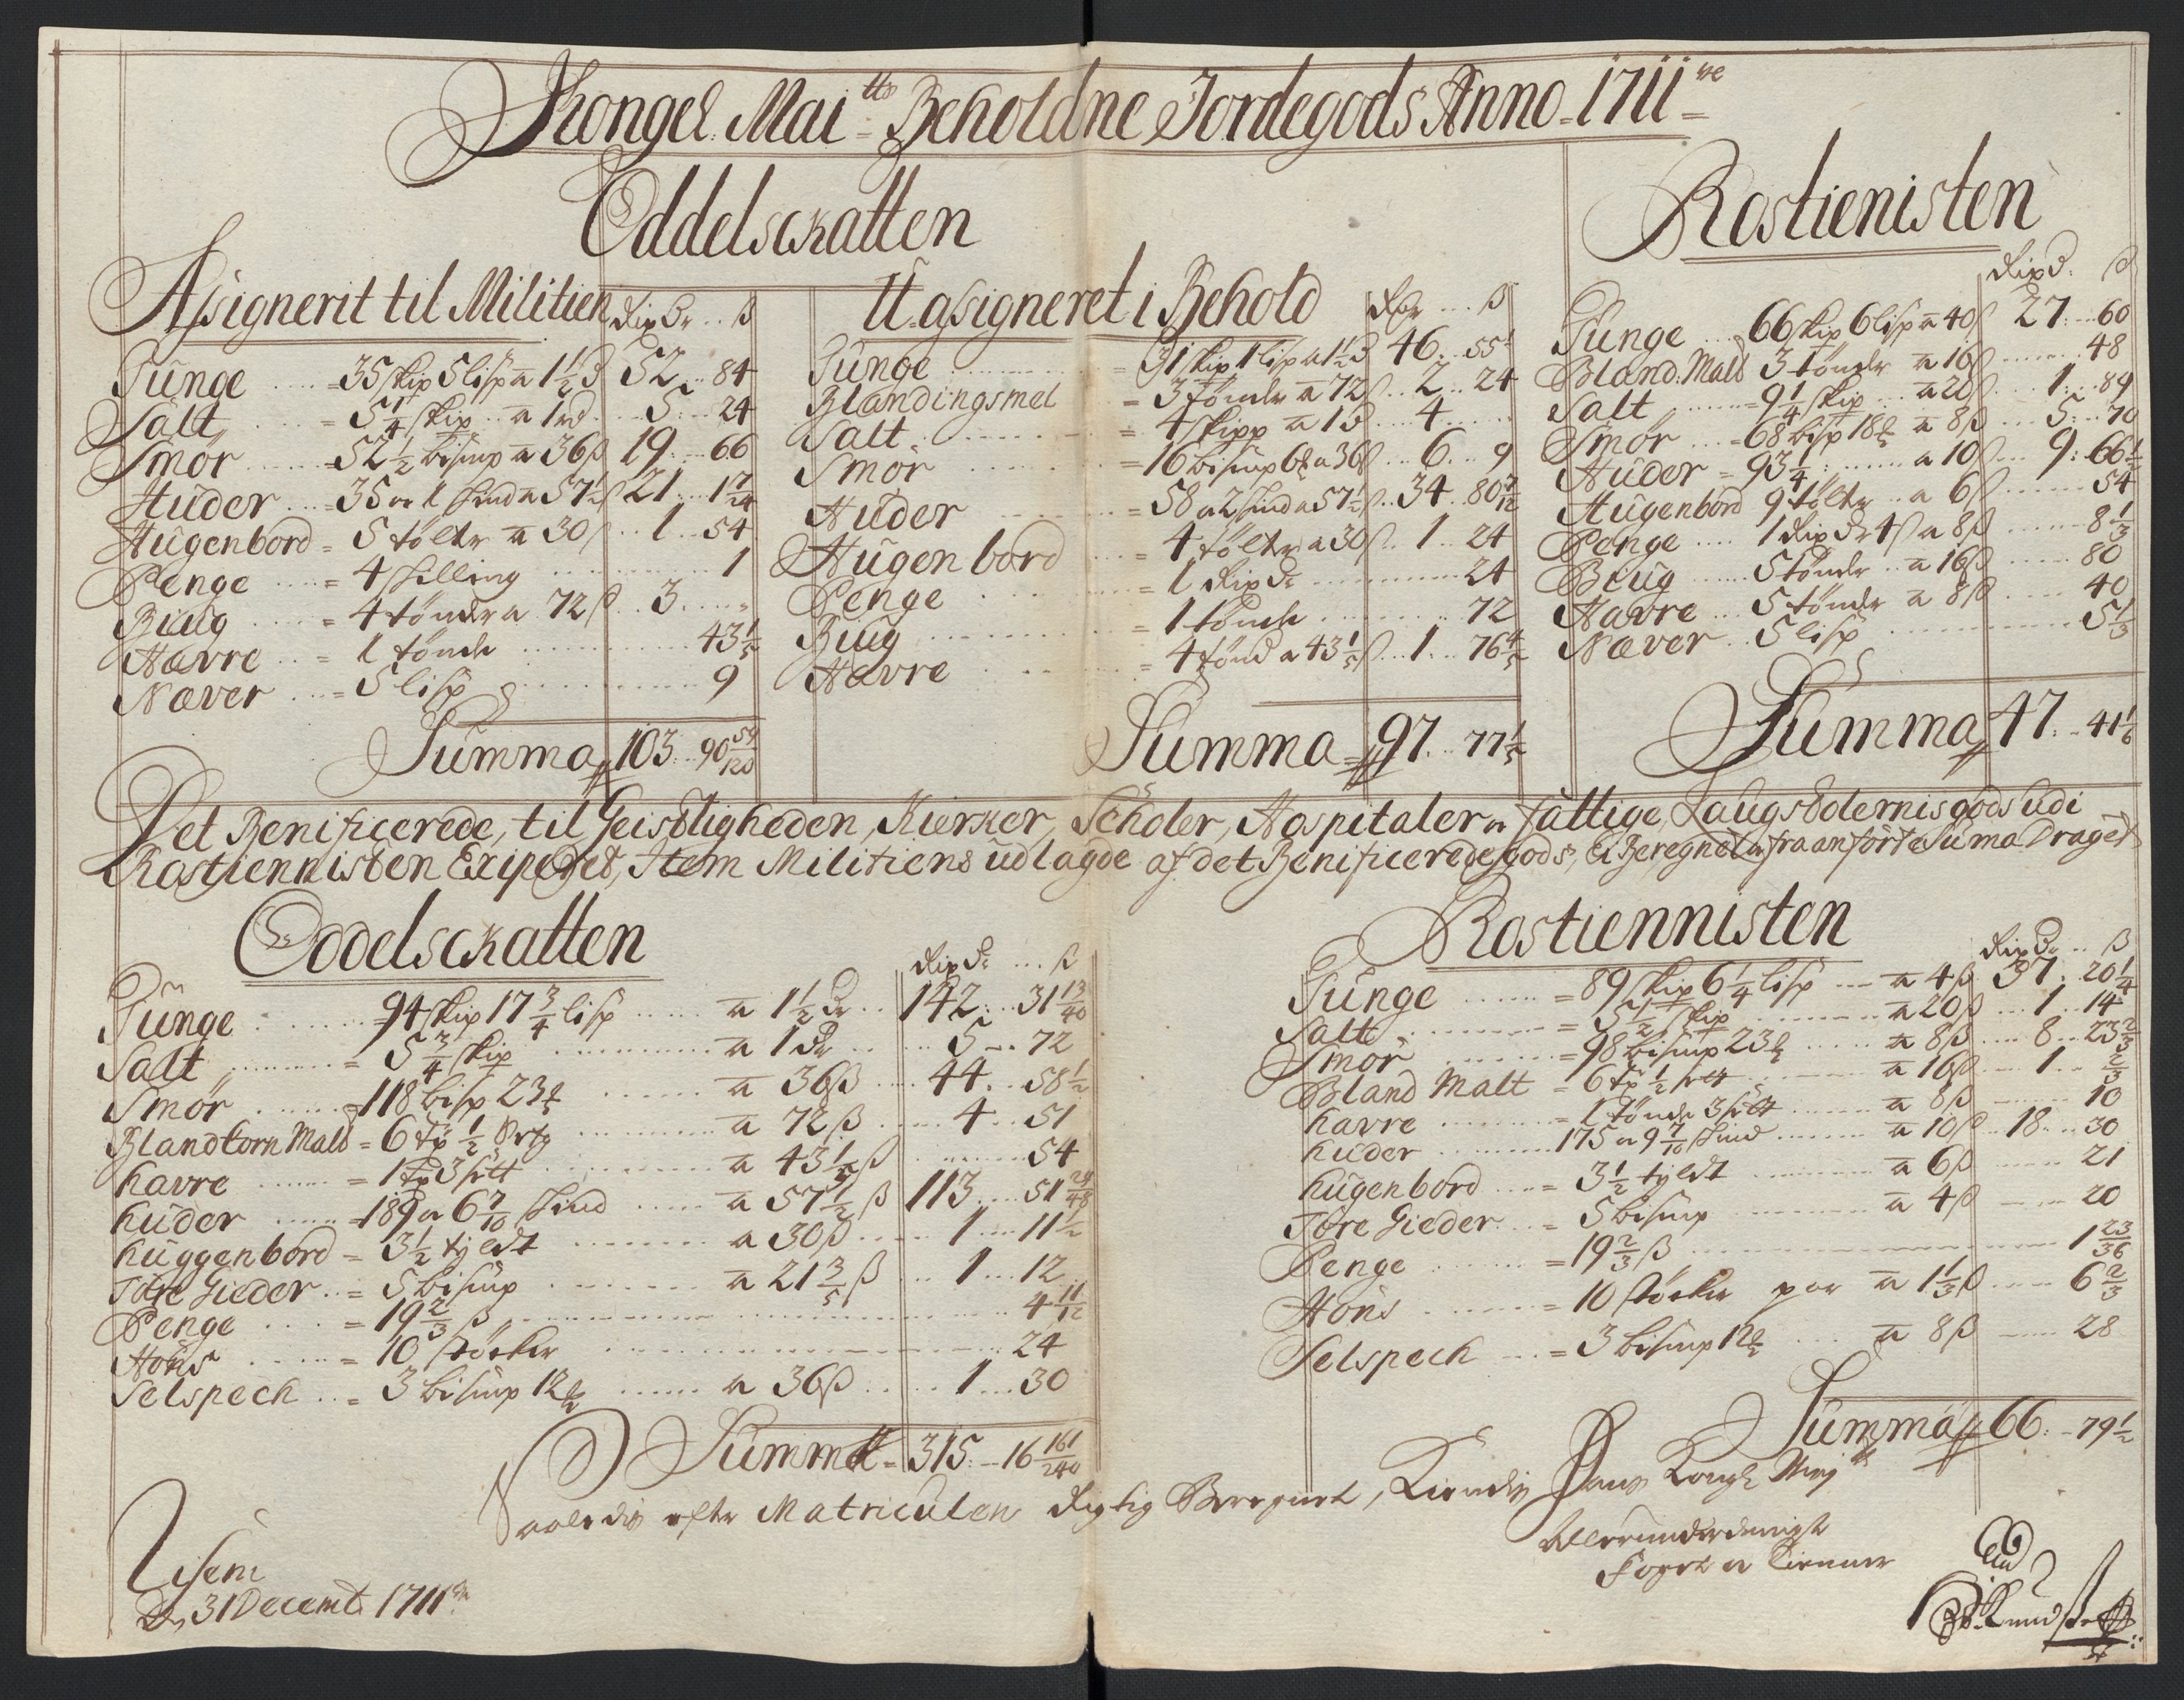 Kongel. Mai<sup>tts</sup> Beholdne Jordegods Anno 1711<sup>ve</sup>
Oddelsckatten
Assignerit til Militien RixDr ß
Tunge = 35 skip 5 lisp a 1½ d 52 84
Salt = 5¼ skip a 1 rd 5 24
Smör = 52½ bismp a 36 ß 19 66
Huder = 35 oc 1 skind a 57½ ß 21 1 7/24
Hugenbord = 5 tölter a 30 ß 1 54
Penge = 4 skilling 1
Biug = 4 tönder a 72 ß 3
Havre = 1 tönde 43 1/5
Næver = 5 lisp 9
Summa 103 90 59/120
U-assigneret i Behold Rdr ß
Tunge = 31 skip 1 lisp a 1½ d 46 55½
Blandingsmel = 3 tönder a 72 ß 2 24
Salt = 4 skipp a 1 d 4
Smör = 16 bismp 6 a 36 ß 6 9
Huder = 58 oc 2 skind a 57½ ß 34 80 7/12
Hugen bord = 4 tölter a 30 ß 1 24
Penge = 1 RixDr 24
Biug = 1 tönde 72
Havre = 4 tönd a 43 1/5 ß 1 76 4/5
Summa 97 77 1/5
Rostienisten
RixD ß
Tunge 66 skip 6 lisp a 40 ß 27 60
Bland: Mald 3 tönder a 16 ß 48
Salt = 9¼ skip a 20 ß 1 89
Smör = 68 bisp 18 a 8 ß 5 70
Huder = 93¼ a 10 ß 9 66½
Hugenbord 9 tölter a 6 ß 54
Penge 1 RixDr 4 ß a 8 ß 8 1/3
Biug 5 tönder a 16 ß 80
Havre 5 tönder a 8 ß 40
Næver 5 lisp 5 1/3
Summa 47 41 1/6
Det Benificerede, til Geistligheden, Kiercker, Scholer, Hospitaler oc fattige, Laugsödernis gods udi
Rostiennisten Exiperet, Item Militiens udlagde af det Benificerede gods, Er Beregnet oc fra anförte Suma Draget
Oddelsckatten
RixDr ß
Tunge 94 skip 17¾ lisp a 1½ Dr 142 31 13/40
Salt = 5¾ skip a 1 Dr 5 72
Smör = 118 bisp 23 a 36 ß 44 58½
Blandkorn Mald = 6 tp ½ a 72 ß 4 51
Havre = 1 tp 3 sett a 43 1/5 ß 54
Huder = 189 oc 6 7/10 skind a 57½ ß 113 51 29/48
Huggenbord = 3½ tyldt a 30 ß 1 11½
Töre Gieder = 5 bismp a 21 3/5 ß 1 12
Penge = 19 2/3 ß 4 11/12
Höns = 10 stöcker 24
Selspeck = 3 bismp 12 a 36 ß 1 30
Summa 315 16 161/240
Rostiennisten
RixDr ß
Tunge = 89 skip 6¼ lisp a 4 ß 37 20¼
Salt = 5½ skip a 20 ß 1 14
Smör = 98 bismp 23 a 8 ß 8 23 2/3
Bland Malt = 6 tp ½ sett a 16 ß 1 2/3
Havre 1 tönde 3 sett a 8 ß 10
Huder 175 oc 9 7/10 skind a 10 ß 18 30
Hugenbord = 3½ tyldt a 6 ß 21
Töre Gieder = 5 bismp a 4 ß 20
Penge = 19 2/3 ß 1 23/36
Höns = 10 stöcker par a 1 1/3 ß 6 2/3
Selspeck = 3 bismp 12 a 8 ß 28
Summa 66 79½
Saaledis efter Matriculen Rigtig Beregnet, Kiendis Hans Kongl Maj<sup>tt</sup>
Allerunderdanigste
Foget oc Tienner
D. 31 Decemb. 1711